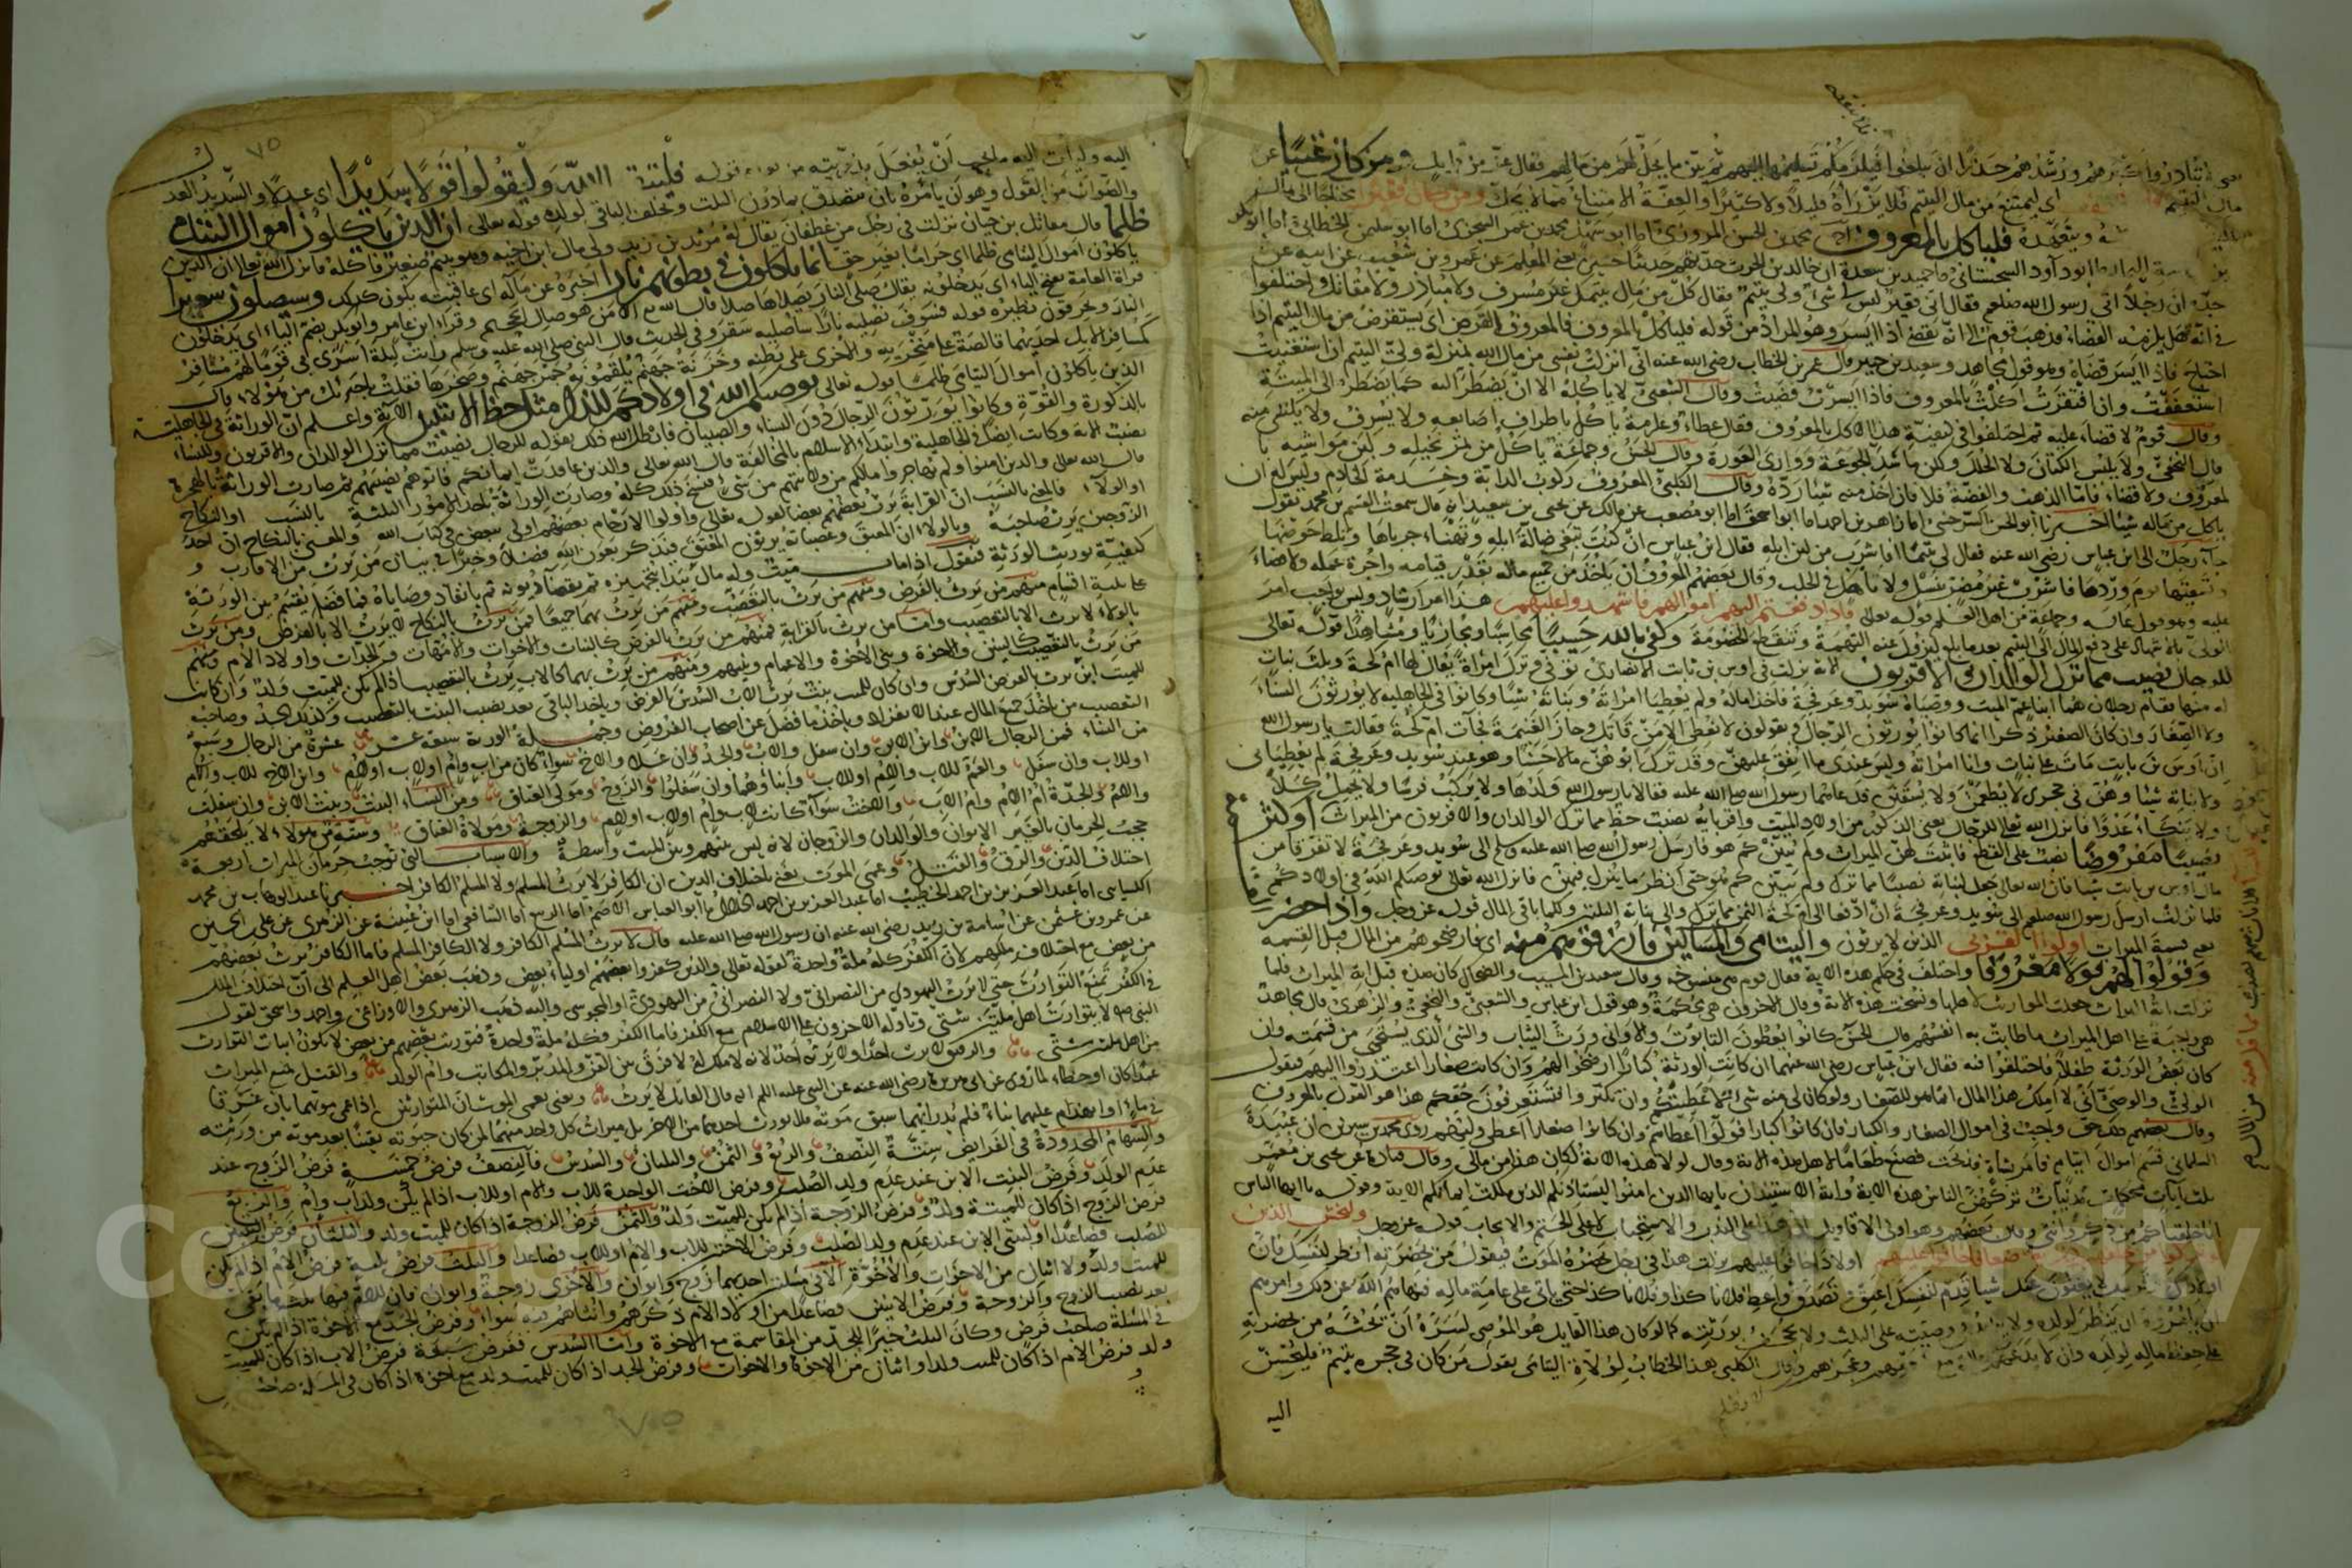 كبرهم ورشدهم حذرا ان يبلغوا فيلزمكم تسليمها اليهم ثم بين ما يحل لهم من مالهم فقال عز من قائل ومن كان غنيا عن
مال اليتيم اى ليمتنع من مال اليتيم فلا يرزأه قليلا ولا كثيرا والعفة الامتناع مما لا يحل ومن كان فقيرا محتاجا الى مال
ويتعهده فلياكل بالمعروف محمد بن الحسن المروزى اما ابو سهل محمد بن عمر السجزى اما ابو سليمن الخطابى اما ابو بكر
ابو داود السجستانى حميد بن مسعدة ان خالد بن الحرث حدثهم حدثنا حسين يعنى المعلم عن عمرو بن شعيب عن ابيه عن
جده ان رجلا اتى رسول الله صلعم فقال انى فقير ليس لى شئ ولى يتيم فقال كل من مال يتيمك غير مسرف ولا مبادر ولا متاثل واختلفوا
فى انه هل يلزمه القضاء فذهب قوم الى انه يقضى اذا ايسر وهو المراد من قوله فلياكل بالمعروف فالمعروف القرض اى يستقرض من مال اليتيم اذا
احتاج فاذا ايسر قضاه وهو قول مجاهد وسعيد بن جبير قال عمر بن الخطاب رضى الله عنه انى انزلت نفسى من مال الله بمنزلة ولى اليتيم ان استغنيت
استعففت وان افتقرت اكلت بالمعروف فاذا ايسرت قضيت وقال الشعبى لا ياكله الا ان يضطر اليه كما يضطر الى الميتة
وقال قوم لا قضاء عليه ثم اختلفوا فى كيفية هذا الاكل بالمعروف فقال عطاء وعكرمة ياكل باطراف اصابعه ولا يسرف ولا يكتسى منه
قال النخعى ولا يلبس الكتان ولا الحلل ولكن ما سد الجوعة ووارى العورة وقال الحسن وجماعة ياكل من ثمر نخيله ولبن مواشيه با
لمعروف ولا قضاء فاما الذهب والفضة فلا فان اخذ منه شيئا رده وقال الكلبى المعروف ركوب الدابة وخدمة الخادم وليس له ان
ياكل من ماله شيئا اخبرنا ابو الحسن السرخسى اما زاهر بن احمد اما ابو اسحق اما ابو مصعب عن مالك عن يحيى بن سعيد انه قال سمعت القسم بن محمد يقول
جاء رجل الى ابن عباس رضى الله عنه فقال لى يتيما افاشرب من لبن ابله فقال ابن عباس ان كنت تبغى ضالة ابله وتهناء جرباها وتلط حوضها
وتسقيها يوم وردها فاشرب غير مضر بنسل ولا ناهك فى الحلب وقال بعضهم المعروف ان ياخذ من جميع ماله بقدر قيامه واجرة عمله ولا قضاء
عليه وهو قول عائشه وجماعة من اهل العلم قوله تعالى فاذا دفعتم اليهم اموالهم فاشهدوا عليهم هذا امر ارشاد وليس بواجب امر
الولى بالاشهاد على دفع المال الى اليتيم بعد ما بلغ ليزول عنه التهمة وتنقطع الخصومة وكفى بالله حسيبا محاسبا ومجازيا ومشاهدا قوله تعالى
للرجال نصيب مما ترك الوالدان والاقربون الاية نزلت فى اوس بن ثابت الانصارى توفى وترك امراة يقال لها ام كحة وثلث بنات
له منها فقام رجلان هما ابنا عم الميت ووصياه سويد وعرفجة فاخذا ماله ولم يعطيا امراته وبناته شيئا وكانوا فى الجاهلية لا يورثون النساء
ولا الصغار وان كان الصغير ذكرا انما كانوا يورثون الرجال ويقولون لا نعطى الا من قاتل وحاز الغنيمة فجات ام كحة فقالت يا رسول الله
ان اوس بن ثابت مات على بنات وانا امراته وليس عندى ما انفق عليهن وقد ترك ابوهن مالا حسنا وهو عند سويد وعرفجة لم يعطيانى
ولا بناته شيئا وهن فى حجرى لا يطعمن ولا يسقين فدعاهما رسول الله صلى الله عليه فقالا يا رسول الله ولدها لا يركب فرسا ولا يحمل كلا
ولا ينكاء عدوا فانزل الله تعالى للرجال يعنى الذكور من اولاد الميت واقربائه نصيب حظ مما ترك الوالدان والاقربون من الميراث او كثر
نصيبا مفروضا نصب على القطع فاثبت لهن الميراث ولم يبين كم هو فارسل رسول الله صلى الله عليه وسلم الى سويد وعرفجة لا تفرقا من
مال اوس بن ثابت شيئا فان الله تعالى جعل لبناته نصيبا مما ترك ولم يبين كم هو حتى انظر ما ينزل فيهن فانزل الله تعالى يوصيكم الله فى اولادكم
فلما نزلت ارسل رسول الله صلعم الى سويد وعرفجة ان ادفعا الى ام كحة الثمن مما ترك والى بناته الثلثين ولكما باقى المال قوله عز وجل واذا حضر
يعنى قسمة الميراث اولوا القربى الذين لا يرثون واليتامى والمساكين فارزقوهم منه اى فارضخوا لهم من المال قبل القسمه
وقولوا لهم قولا معروفا واختلف فى حكم هذه الاية فقال قوم هى منسوخة وقال سعيد بن المسيب والضحاك كان هذه قبل اية الميراث فلما
نزلت اية الميراث جعلت المواريث لاهلها ونسخت هذه الاية وقال الاخرون هى محكمة وهو قول ابن عباس والشعبى والنخعى والزهرى قال مجاهد
هى واجبة على اهل الميراث ما طابت به انفسهم قال الحسن كانوا يعطون التابوت والاوانى ورث الثياب والشئ الذى يستحيى من قسمته وان
كان بعض الورثة طفلا فاختلفوا فيه فقال ابن عباس رضى الله عنهما ان كانت الورثة كبارا رضخوا لهم وان كانت صغارا اعتذروا اليهم فيقول
الولى والوصى انى لا املك هذا المال انما هو للصغار ولو كان لى منه شئ لاعطيتكم وان يكبروا فسيعرفون حقكم هذا هو القول بالمعروف
وقال بعضهم ذلك حق واجب فى اموال الصغار والكبار فان كانوا كبارا تولوا اعطاءهم وان كانوا صغارا اعطى وليهم روى محمد بن سيرين ان عبيدة
السلمانى قسم اموال ايتام فامر بشاة فذبحت فصنع طعاما لاهل هذه الاية وقال لولا هذه الاية لكان هذا من مالى وقال قتادة عن يحيى بن معمر
ثلث ايات محكمات مدنيات تركهن الناس هذه الاية واية الاستيذان يا ايها الذين امنوا ليستاذنكم الذين ملكت ايمانكم الاية وقوله يا ايها الناس
انا خلقناكم من ذكر وانثى وقال بعضهم وهو اولى الاقاويل ان هذا على الندب والاستحباب لا على الحتم والايجاب قوله عز وجل وليخش الذين
اولادا خافوا عليهم نزلت هذا فى رجل حضره الموت فيقول من بحضرته انظر لنفسك فان
اولادك لا يغنون عنك شيئا قدم لنفسك اعتق وتصدق واعط فلانا كذا وفلانا كذا حتى ياتى على عامة ماله فنهاهم الله عن ذلك وامرهم
ان يامروه ان ينظر لولده ولا يزيد فى وصيته على الثلث ولا يجحف بورثته كما لو كان هذا القايل هو الموصى لسره ان يحثه من بحضرته
على حفظ ماله لولده وان لا يدعهم وقال الكلبى هذا الخطاب لولاة اليتامى يقول من كان فى حجره يتيم فليحسن
اليه
٧٥
اليه وليات اليه ما يحب ان يفعل بذريته من بعده قوله فليتقوا الله وليقولوا قولا سديدا اى عدلا والسديد العد
والصواب من القول وهو ان يامره بان يتصدق بما دون الثلث ويخلف الباقى لولده قوله تعالى ان الذين ياكلون اموال اليتامى
ظلما قال مقاتل بن حيان نزلت فى رجل من غطفان يقال له مرثد بن زيد ولى مال ابن اخيه وهو يتيم صغير فاكله فانزل الله تعالى ان الذين
ياكلون اموال اليتامى ظلما اى حراما بغير حق انما ياكلون فى بطونهم نارا اخبره عن ماله اى عاقبته يكون كذلك وسيصلون سعيرا
قراة العامة بفتح الياء اى يدخلونه يقال صلى النار يصلاها صلا قال الله تعالى الا من هو صال الجحيم وقراء ابن عامر وابو بكر بضم الياء اى يدخلون
النار ويحرقون نظيره قوله فسوف نصليه نارا ساصليه سقر وفى الحديث قال النبى صلى الله عليه وسلم رايت ليلة اسرى بى قوما لهم مشافر
كمشافر الابل احديهما قالصة على منخريه والاخرى على بطنه وخزنة جهنم يلقمونه جمر جهنم وصخرها فقلت يا جبرئل من هؤلاء قال
الذين ياكلون اموال اليتامى ظلما قوله تعالى يوصيكم الله فى اولادكم للذكر مثل حظ الانثيين الاية واعلم ان الوراثة فى الجاهلية
بالذكورة والقوة وكانوا يورثون الرجال دون النساء والصبيان فابطل الله ذلك بقوله للرجال نصيب مما ترك الوالدان والاقربون وللنساء
نصيب الاية وكانت ايضا فى الجاهلية وابتداء الاسلام بالمخالفة قال الله تعالى والذين عاقدت ايمانكم فاتوهم نصيبهم ثم صارت الوراثة بالهجرة
قال الله تعالى والذين امنوا ولم يهاجروا مالكم من ولايتهم من شئ فنسخ ذلك كله وصارت الوراثة باحد الامور الثلثة بالنسب او النكاح
او الولاء فالمعنى بالنسب ان القرابة يرث بعضهم بعضا لقوله تعالى واولوا الارحام بعضهم اولى ببعض فى كتاب الله والمعنى بالنكاح ان احد
الزوجين يرث صاحبه وبالولاء ان المعتق وعصباته يرثون المعتق فنذكر بعون الله فصلا وجيزا فى بيان من يرث من الاقارب و
كيفية توريث الورثة فنقول اذا مات ميت وله مال يبدا بتجهيزه ثم بقضاء ديونه ثم بانفاد وصاياه فما فضل يقسم بين الورثة
على ثلثة اقسام منهم من يرث بالفرض ومنهم من يرث بالتعصيب ومنهم من يرث بهما جميعا فمن يرث بالنكاح لا يرث الا بالفرض ومن يرث
بالولاء لا يرث الا بالتعصيب واما من يرث بالقرابة فمنهم من يرث بالفرض كالبنات والاخوات والامهات والجدات واولاد الام ومنهم
من يرث بالتعصيب كالبنين والاخوة وبنى الاخوة والاعمام وبنيهم ومنهم من يرث بهما كالاب يرث بالتعصيب اذا لم يكن للميت ولد وان كان
للميت ابن يرث بالفرض السدس وان كان للميت بنت يرث الاب السدس بالفرض وياخذ الباقى بعد نصيب البنت بالتعصيب وكذلك الجد وصاحب
التعصيب من ياخذ جميع المال عند الانفراد وياخذ ما فضل عن اصحاب الفروض وجملة الورثة سبعة عشر عشرة من الرجال وسبع
من النساء فمن الرجال الابن وابن الابن وان سفل والاب والجد وان علا والاخ سواء كان من اب وام او لاب او لام وابن الاخ للاب والام
او للاب وان سفل والعم للاب والام او للاب وابناؤهما وان سفلوا والزوج ومولى العتاق ومن النساء البنت وبنت الابن وان سفلت
والام والجدة ام الام وام الاب والاخت سواء كانت لاب وام او لاب او لام والزوجة ومولاة العتاق وستة من هؤلاء لا يلحقهم
حجب الحرمان بالغير الابوان والوالدان والزوجان لانه ليس بينهم وبين الميت واسطة والاسباب التى توجب حرمان الميراث اربعة
اختلاف الدين والرق والقتل وعمى الموت يعنى باختلاف الدين ان الكافر لا يرث المسلم ولا المسلم الكافر اخبرنا عبد الوهاب بن محمد
الكسايى اما عبد العزيز بن احمد الخطيب اما عبد العزيز بن احمد الخلال اما ابو العباس الاصم اما الربيع اما الشافعى اما ابن عيينة عن الزهرى عن على بن الحسين
عن عمرو بن عثمن عن اسامة بن زيد رضى الله عنه ان رسول الله صلى الله عليه قال لا يرث المسلم الكافر ولا الكافر المسلم فاما الكافر يرث بعضهم
من بعض مع اختلاف مللهم لان الكفر كله ملة واحدة لقوله تعالى والذين كفروا بعضهم اولياء بعض وذهب بعض اهل العلم الى ان اختلاف الملل
فى الكفر يمنع التوارث حتى لا يرث اليهودى من النصرانى ولا النصرانى من اليهودى او المجوسى واليه ذهب الزهرى والاوزاعى واحمد واسحق لقول
النبى صلى لا يتوارث اهل ملتين شتى وتاوله الاخرون على الاسلام مع الكفر فاما الكفر فكله ملة واحدة فتوريث بعضهم من بعض لا يكون اثبات التوارث
من اهل ملتين شتى والرقيق لا يرث احدا ولا يرثه احد لانه لا ملك له لا فرق بين القن والمدبر والمكاتب وام الولد والقتل يمنع الميراث
عمدا كان او خطاء لما روى عن ابى هريرة رضى الله عنه عن النبى عليه السلم انه قال القاتل لا يرث ونعنى بعمى الموت ان المتوارثين اذا عمى موتهما بان غرقا
فى ماء او انهدام عليهما بناء فلم يدر ايهما سبق موته فلا يورث احدهما من الاخر بل ميراث كل واحد منهما لمن كان حيوته يقينا بعد موته من ورثته
والسهام المحدودة فى الفرايض ستة النصف والربع والثمن والثلثان والثلث والسدس فالنصف فرض خمسة فرض الزوج عند
عدم الولد وفرض البنت او بنت الابن عند عدم ولد الصلب وفرض الاخت الواحدة للاب والام او للاب اذا لم يكن ولد لاب وام والربع
فرض الزوج اذا كان للميتة ولد وفرض الزوجة اذا لم يكن للميت ولد والثمن فرض الزوجة اذا كان للميت ولد والثلثان فرض البنتين
للصلب فصاعدا او لبنتى الابن عند عدم ولد الصلب وفرض الاختين للاب والام او للاب فصاعدا والثلث فرض ثلثة فرض الام اذا لم يكن
للميت ولد ولا اثنان من الاخوات والاخوة الا فى مسئلتين احديهما زوج وابوان والاخرى زوجة وابوان فان للام فيها ثلث ما بقى
بعد نصيب الزوج والزوجة وفرض الاثنين فصاعدا من اولاد الام ذكرهم وانثاهم فيه سواء وفرض الجد مع الاخوة اذا لم يكن
فى المسئلة صاحب فرض وكان الثلث خيرا للجد من المقاسمة مع الاخوة واما السدس ففرض سبعة فرض الاب اذا كان للميت
ولد وفرض الام اذا كان للميت ولد او اثنان من الاخوة والاخوات وفرض الجد اذا كان للميت ولد ومع الاخوة اذا كان فى المسئلة صاحب